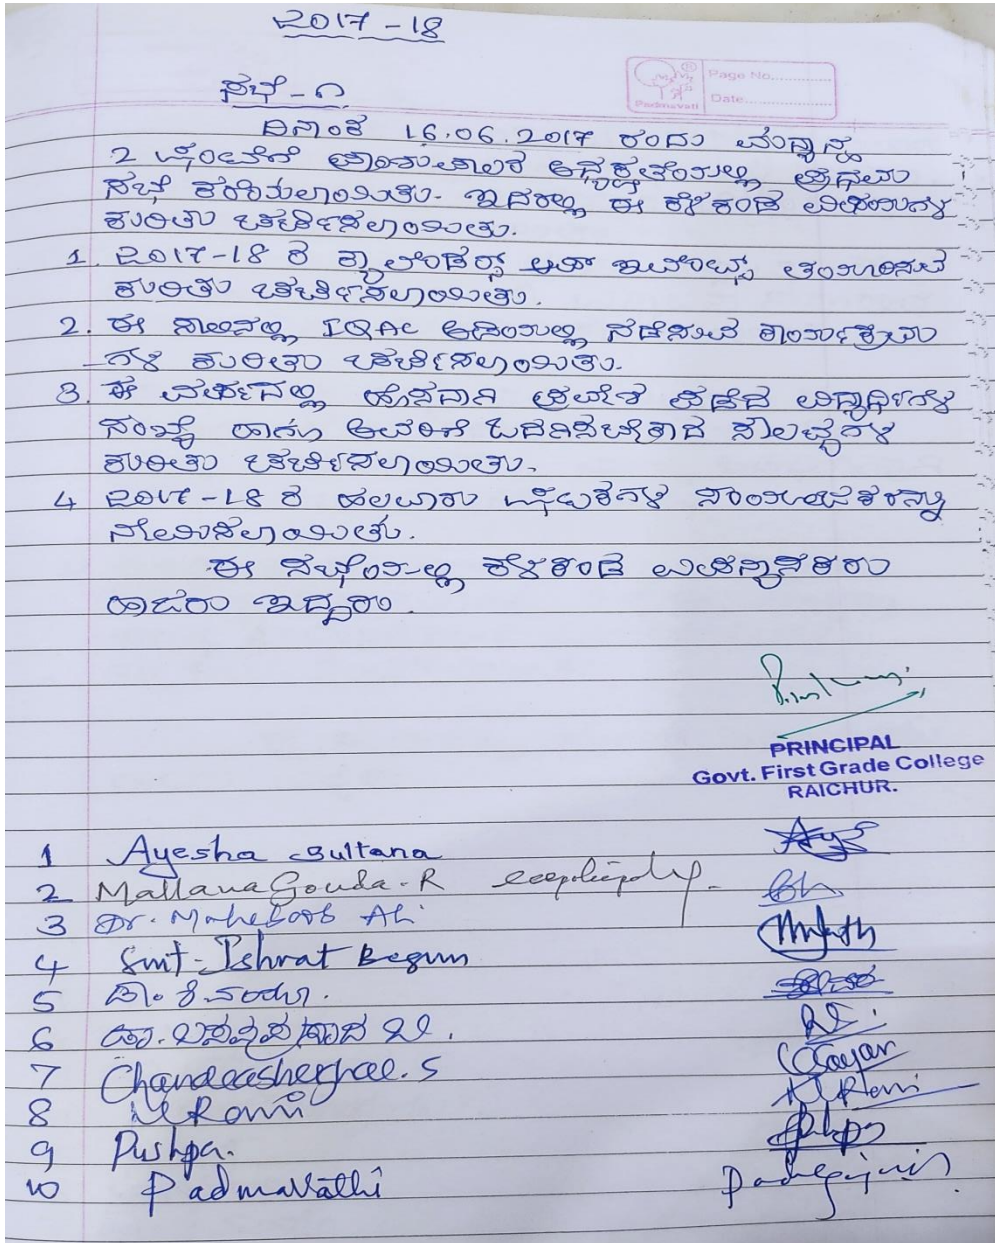 2017-18
ಸಭೆ-೧
Page No.
Date
Padmavati
ದಿನಾಂಕ 16.06.2017 ರಂದು ಮಧ್ಯಾಹ್ನ
2 ಘಂಟೆಗೆ ಪ್ರಾಂಶುಪಾಲರ ಅಧ್ಯಕ್ಷತೆಯಲ್ಲಿ ಪ್ರಥಮ
ಸಭೆ ಕರೆಯಲಾಯಿತು. ಇದರಲ್ಲಿ ಈ ಕೆಳಕಂಡ ವಿಷಯಗಳ
ಕುರಿತು ಚರ್ಚಿಸಲಾಯಿತು.
1. 2017-18 ರ ಕ್ಯಾಲೆಂಡರ್ಸ್ ಆಫ್ ಇವೆಂಟ್ಸ್ ತಯಾರಿಸುವ
ಕುರಿತು ಚರ್ಚಿಸಲಾಯಿತು.
2. ಈ ಸಾಲಿನಲ್ಲಿ IQAC ಅಡಿಯಲ್ಲಿ ನಡೆಸುವ ಕಾರ್ಯಕ್ರಮ
ಗಳ ಕುರಿತು ಚರ್ಚಿಸಲಾಯಿತು.
3. ಈ ವರ್ಷದಲ್ಲಿ ಹೊಸದಾಗಿ ಪ್ರವೇಶ ಪಡೆದ ವಿದ್ಯಾರ್ಥಿಗಳ
ಸಂಖ್ಯೆ ಹಾಗೂ ಅವರಿಗೆ ಒದಗಿಸಬೇಕಾದ ಸೌಲಭ್ಯಗಳ
ಕುರಿತು ಚರ್ಚಿಸಲಾಯಿತು.
4 2017-18 ರ ಹಲವಾರು ಘಟಕಗಳ ಸಂಯೋಜಕರನ್ನು
ನೇಮಿಸಲಾಯಿತು.
ಈ ಸಭೆಯಲ್ಲಿ ಕೆಳಕಂಡ ಉಪನ್ಯಾಸಕರು
ಹಾಜರು ಇದ್ದರು.
PRINCIPAL
Govt. First Grade College
RAICHUR.
1 Ayesha Sultana
2 Mallana Gouda.R
3 Dr. Maheboob Ali
4 Smt. Ishrat Begum
5
6 ಡಾ. ಬಸವಪ್ರಸಾದ ಬಿ.
7 Chandrashekhar.S
8
9 Pushpa.
10 Padmavathi